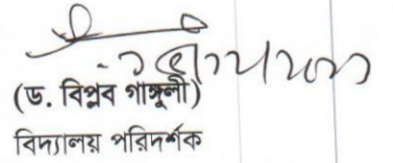 (ড. বিপ্লব গাঙ্গুলী)
বিদ্যালয় পরিদর্শক